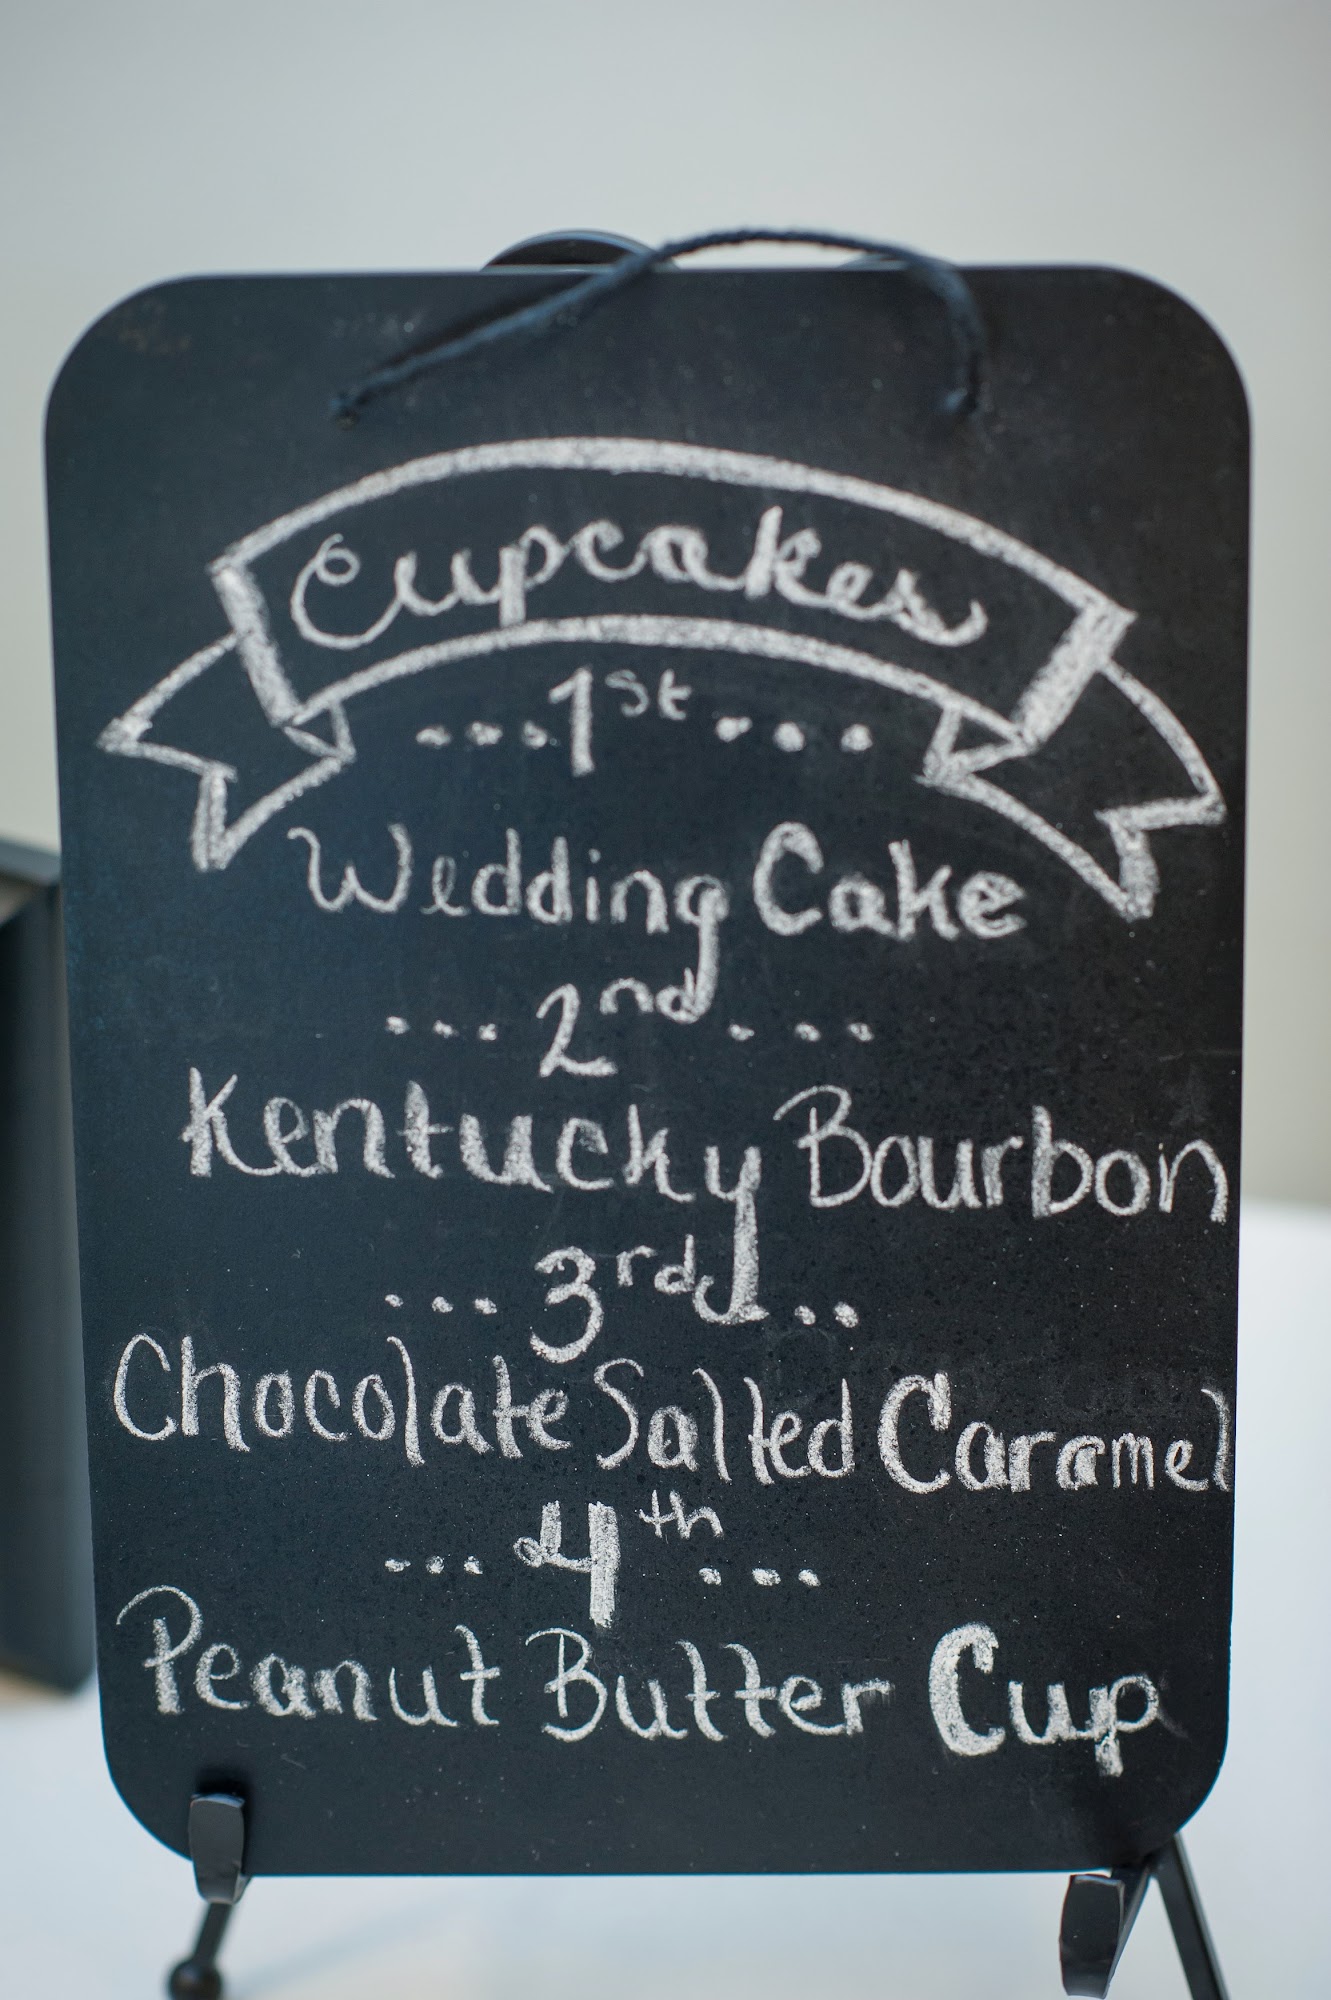 Cupcakes
...1st...
Wedding Cake
...2nd...
Kentucky Bourbon
...3rd...
Chocolate Salted Caramel
...4th...
Peanut Butter Cup